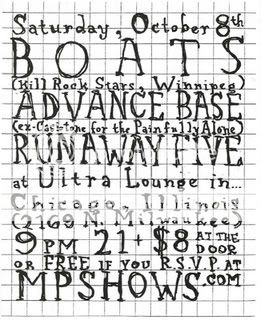 Saturday, October 8th
BOATS
(Kill Rock Stars, Winnipeg)
ADVANCE BASE
(ex-Casiotone for the Painfully Alone)
RUNAWAY FIVE
at Ultra Lounge in...
Chicago, Illinois
(2169 N. Milwaukee)
9PM 21+ $8 AT THE DOOR
OR FREE IF YOU R.S.V.P. AT
MPSHOWS.COM